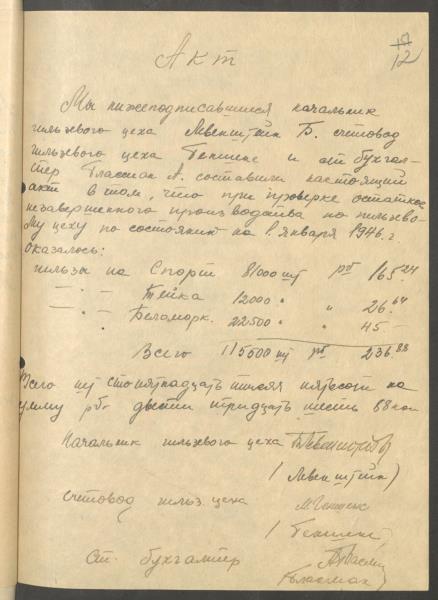 12
Акт
Мы нижеподписавшиеся начальник
гильзевого цеха Левенштейн Б. счетовод
гильзевого цеха и ст бухгал-
тер Глассман А. составили настоящий
акт в том, что при проверке остатков
незавершенного производства по гильзево-
му цеху по состоянию на 1. января 1946 г.
оказалось:
гильзы на Спорт 81000 шт рб 165.24
— " — Тейка 12000 " " 26.64
— " — Беломорк. 22500 " " 45.—
Всего 115500 шт рб 236.88
Всего шт сто пятнадцать тысяч пятьсот на
сумму рб двести тридцать шесть 88 коп
Начальник гильзевого цеха
(Левенштейн)
Счетовод гильз. цеха
Ст. бухгалтер